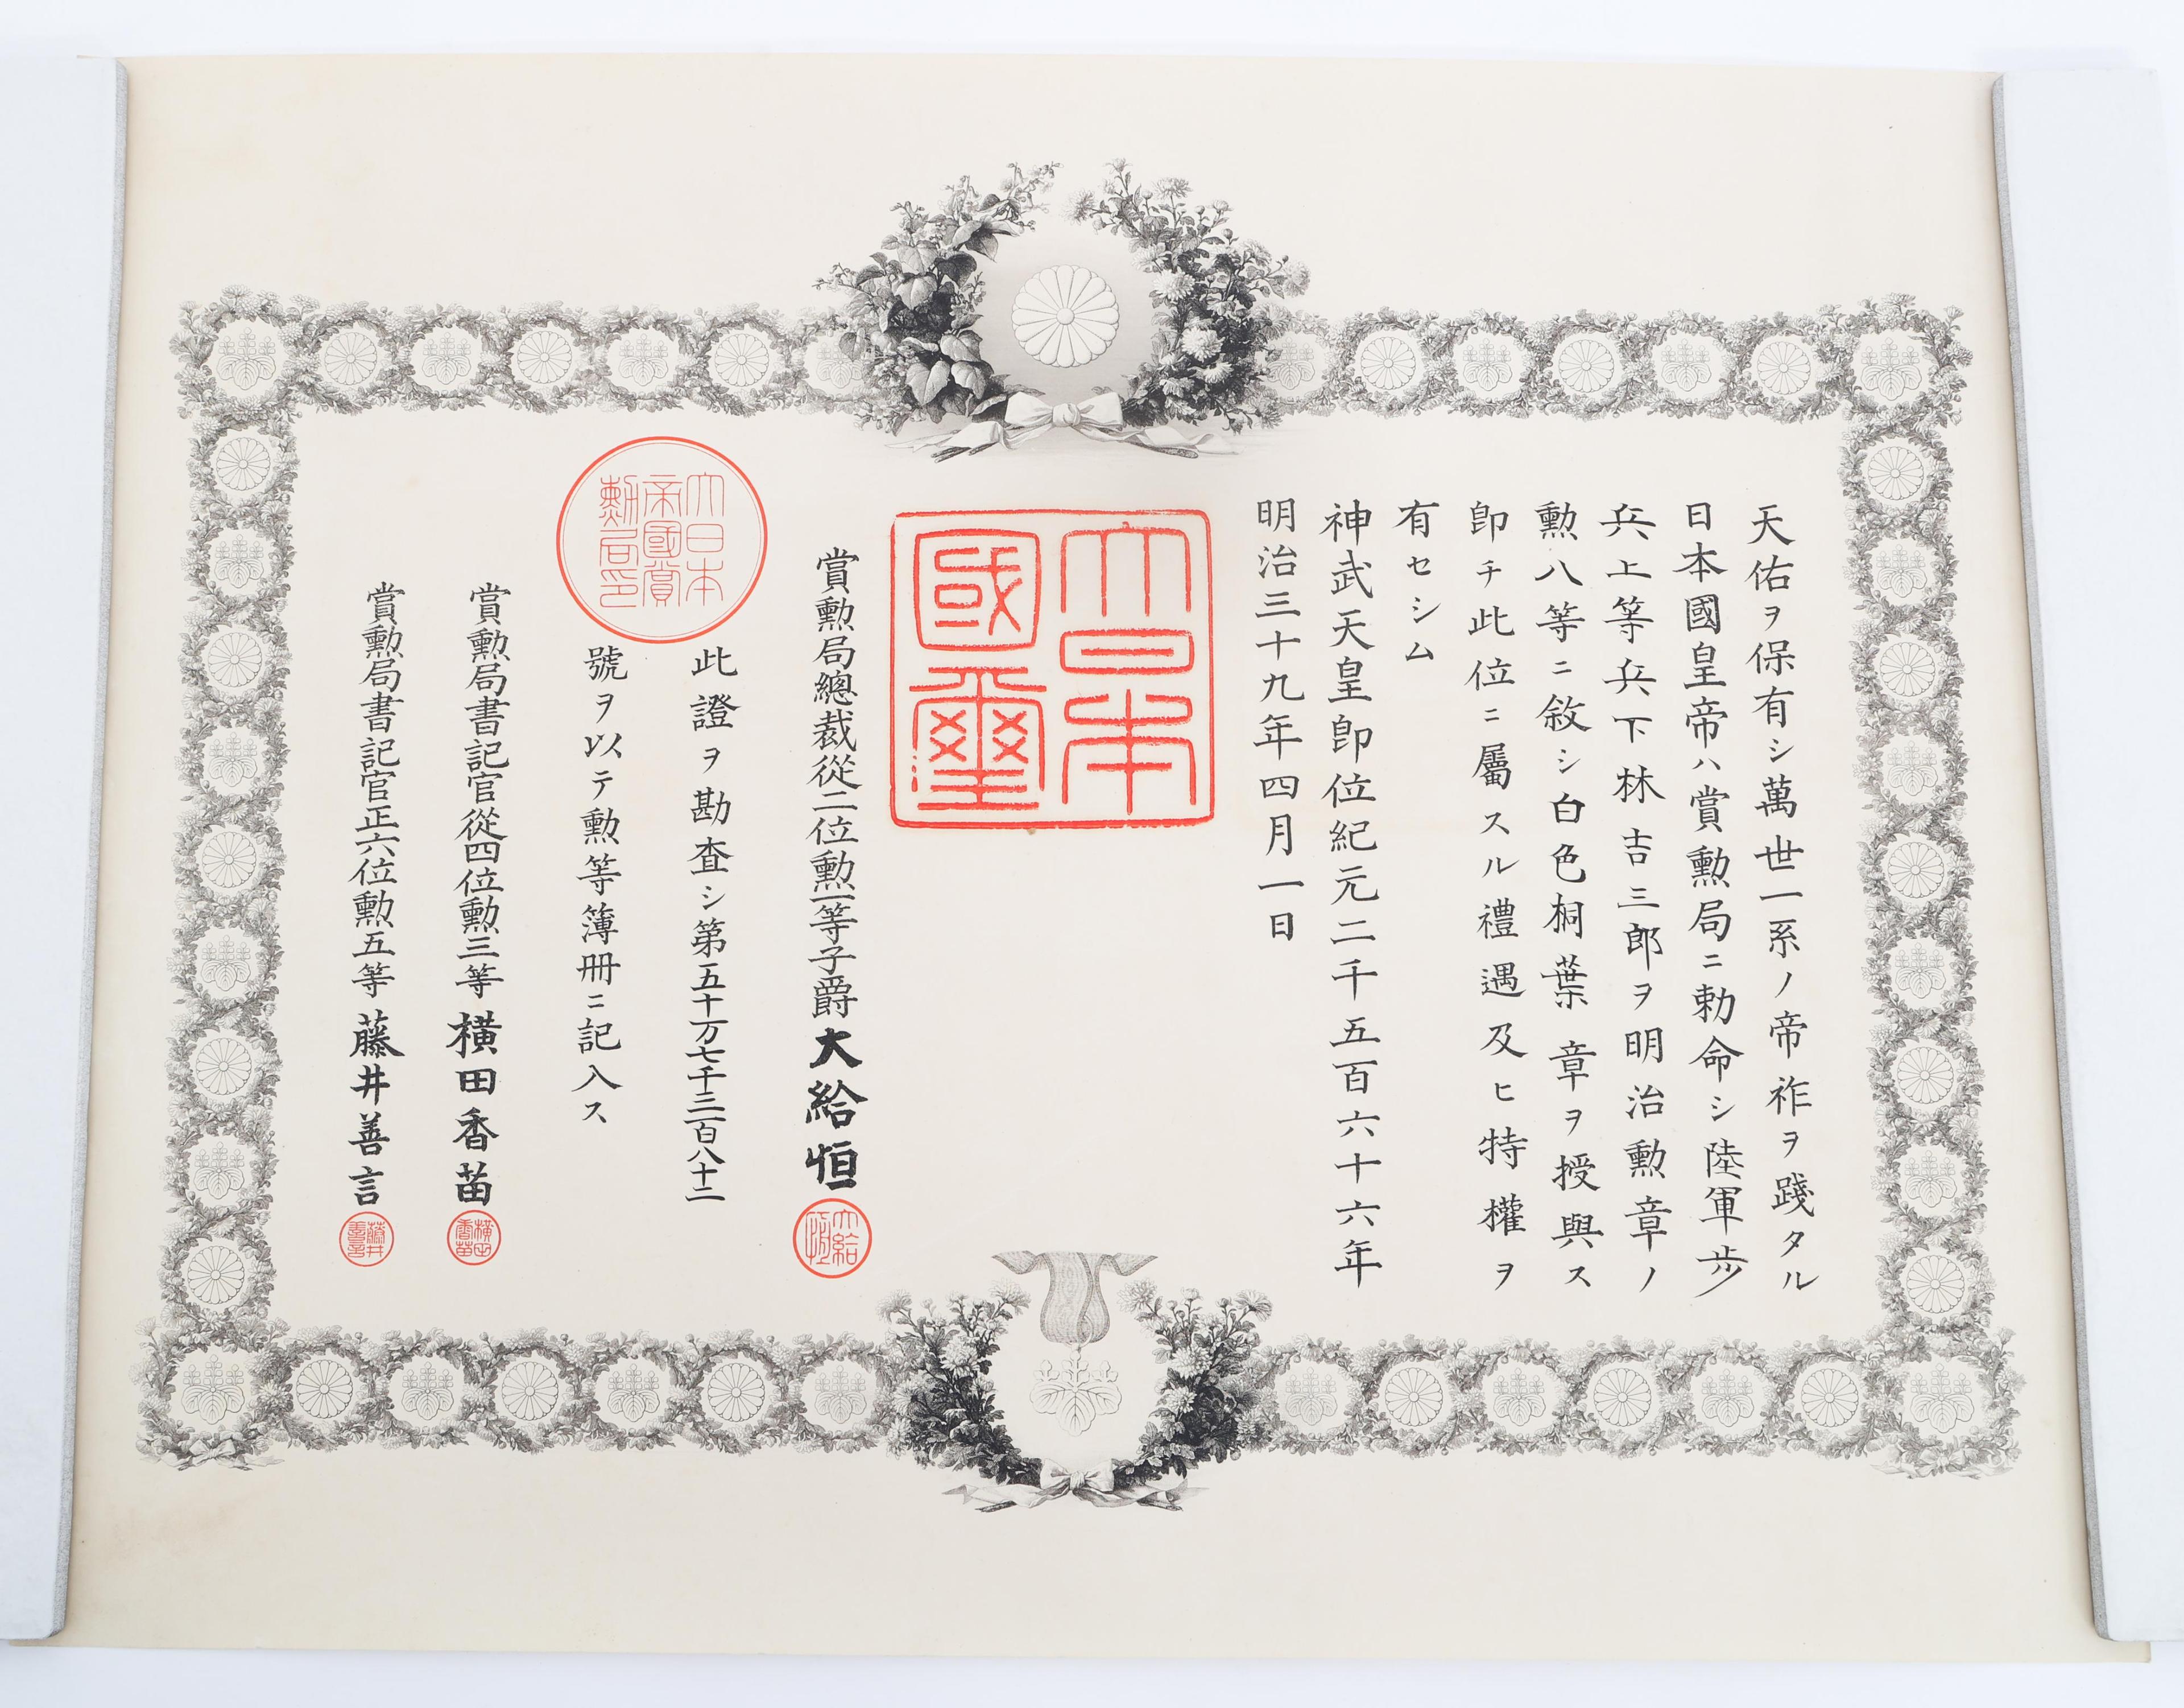 天佑ヲ保有シ萬世一系ノ帝祚ヲ踐タル
日本國皇帝ハ賞勲局ニ勅命シ陸軍歩
兵上等兵下林吉三郎ヲ明治勲章ノ
勲八等ニ敘シ白色桐葉章ヲ授與ス
卽チ此位ニ屬スル禮遇及ヒ特權ヲ
有セシム
神武天皇卽位紀元二千五百六十六年
明治三十九年四月一日
大日本
國璽
賞勲局總裁從二位勲一等子爵大給恒
大給
恒
大日本
帝國賞
勲局印
此證ヲ勘査シ第五十万七千三百八十二
號ヲ以テ勲等簿冊ニ記入ス
賞勲局書記官從四位勲三等橫田香苗
橫田
香苗
賞勲局書記官正六位勲五等藤井善言
藤井
善言